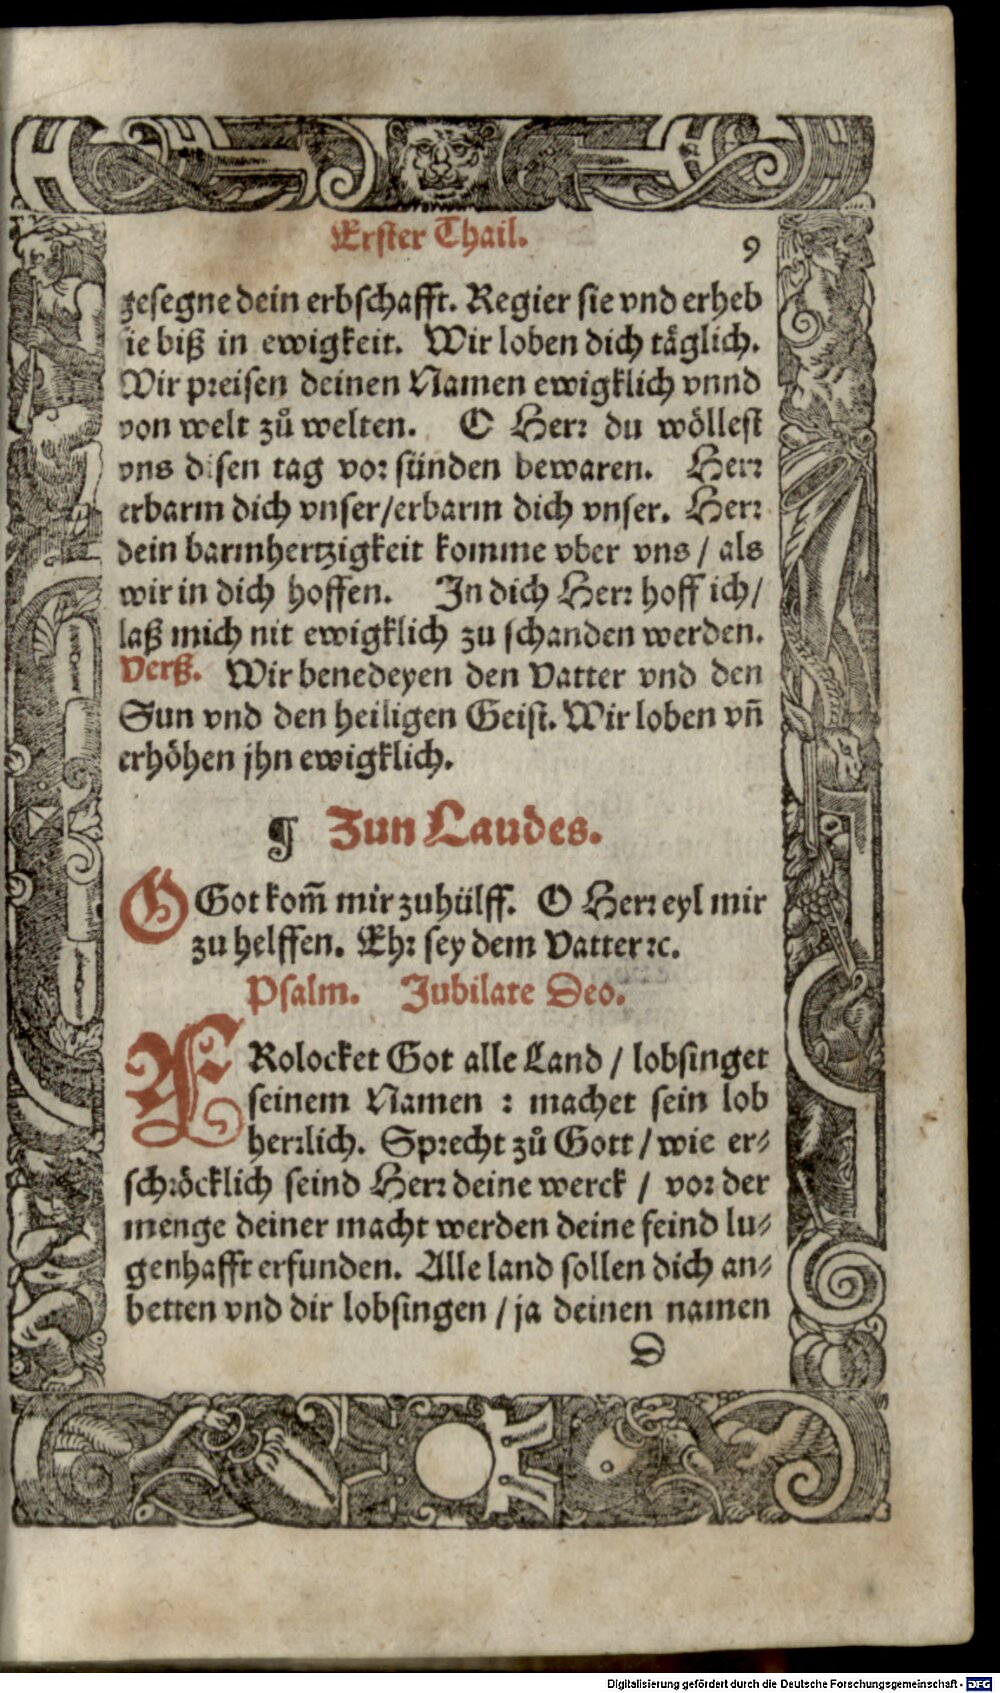 Erster Thail. 9
gesegne dein erbschafft. Regier sie vnd erheb
ie biß in ewigkeit. Wir loben dich täglich.
Wir preisen deinen Namen ewigklich vnnd
von welt zuͦ welten. O Herr du wöllest
vns disen tag vor sünden bewaren. Herr
erbarm dich vnser/erbarm dich vnser. Herr
dein barmhertzigkeit komme vber vns / als
wir in dich hoffen. In dich Herr hoff ich/
laß mich nit ewigklich zu schanden werden.
Verß. Wir benedeyen den Vatter vnd den
Sun vnd den heiligen Geist. Wir loben vn̄
erhöhen jhn ewigklich.
¶ Zun Laudes.
O Got kom̄ mir zuhülff. O Herr eyl mir
zu helffen. Ehr sey dem Vatter ꝛc.
Psalm. Jubilate Deo.
FRolocket Got alle Land / lobsinget
seinem Namen : machet sein lob
herrlich. Sprecht zuͦ Gott / wie er⸗
schröcklich seind Herr deine werck / vor der
menge deiner macht werden deine feind lu⸗
genhafft erfunden. Alle land sollen dich an⸗
betten vnd dir lobsingen / ja deinen namen
D
Digitalisierung gefördert durch die Deutsche Forschungsgemeinschaft - DFG